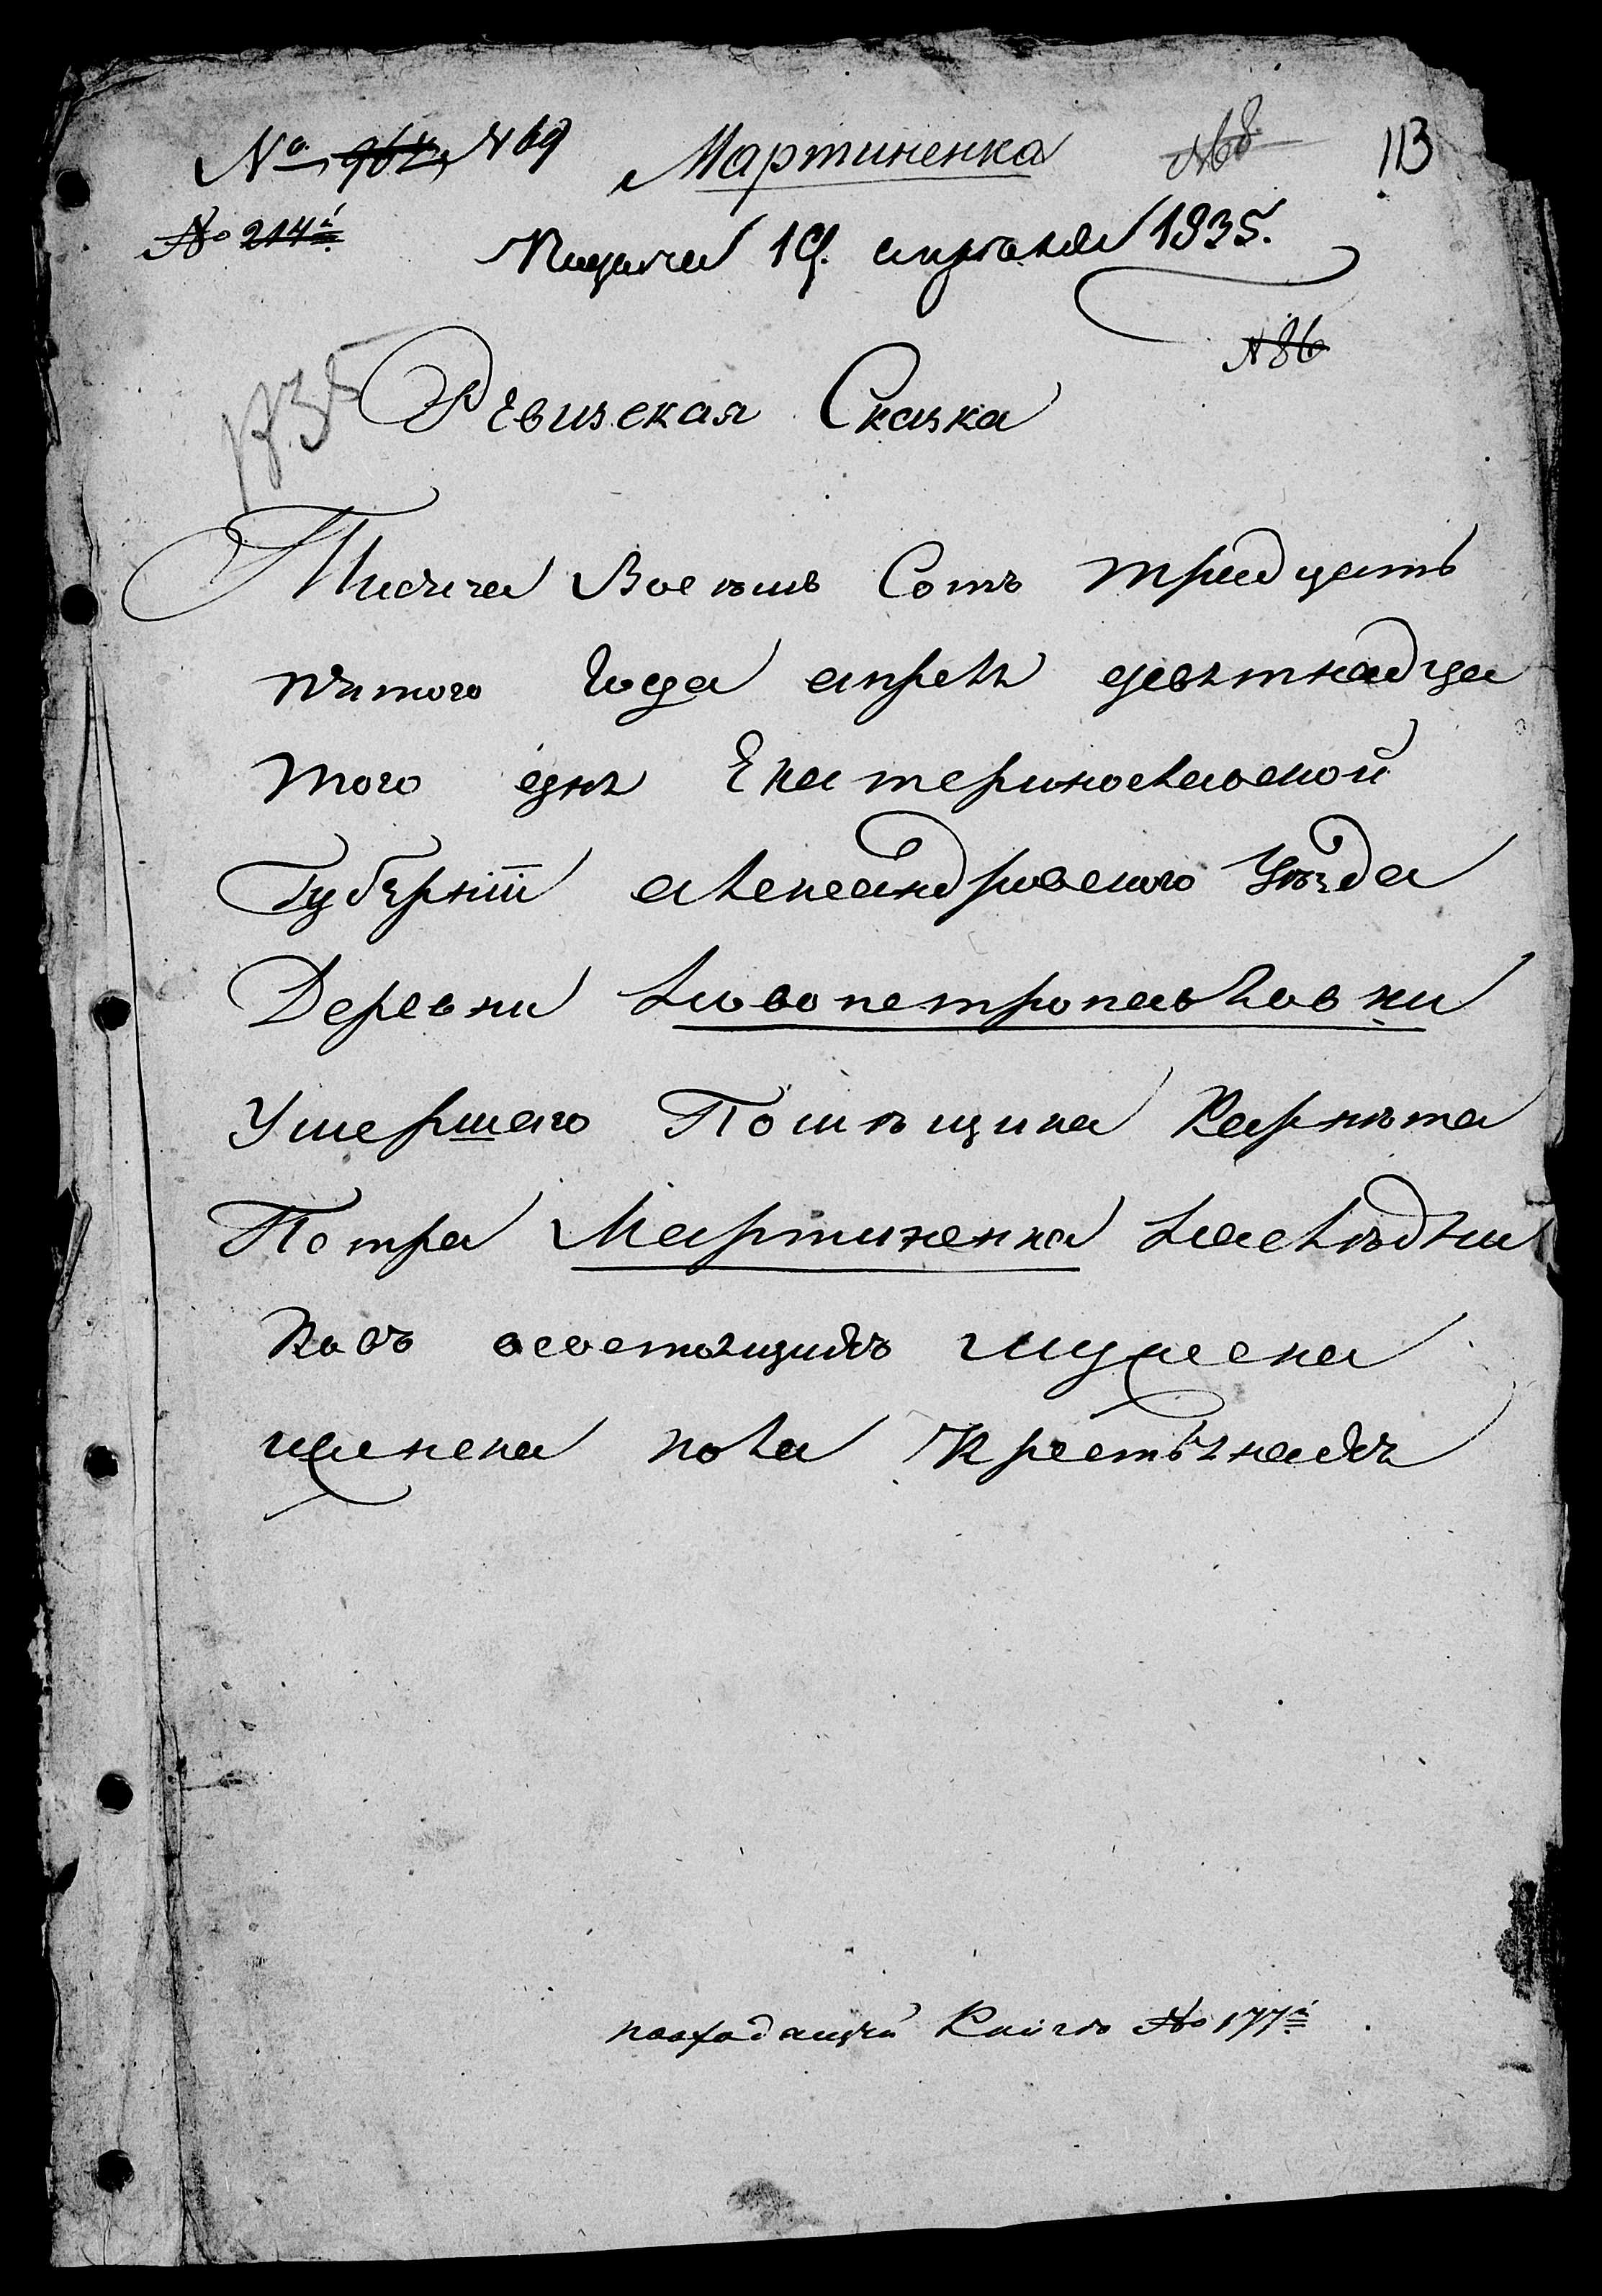 № 964, № 69 Мартиненка № 8 113
№ 214й
Подана 19. апреля 1835.
№ 86
1835
Ревизская Сказка
Тисяча Восемь Сотъ тридцать
пятого Года апреля девятнадца
того дня Екатеринославской
Губернїи александровского Уезда
Деревни Новопетропавловки
Умершаго Помѣщика Карнѣта
Петра Мартиненка Наслѣдни
ковъ о состоящихъ мужеска
женска пола Крестьянахъ
по входящей Книгѣ № 177й